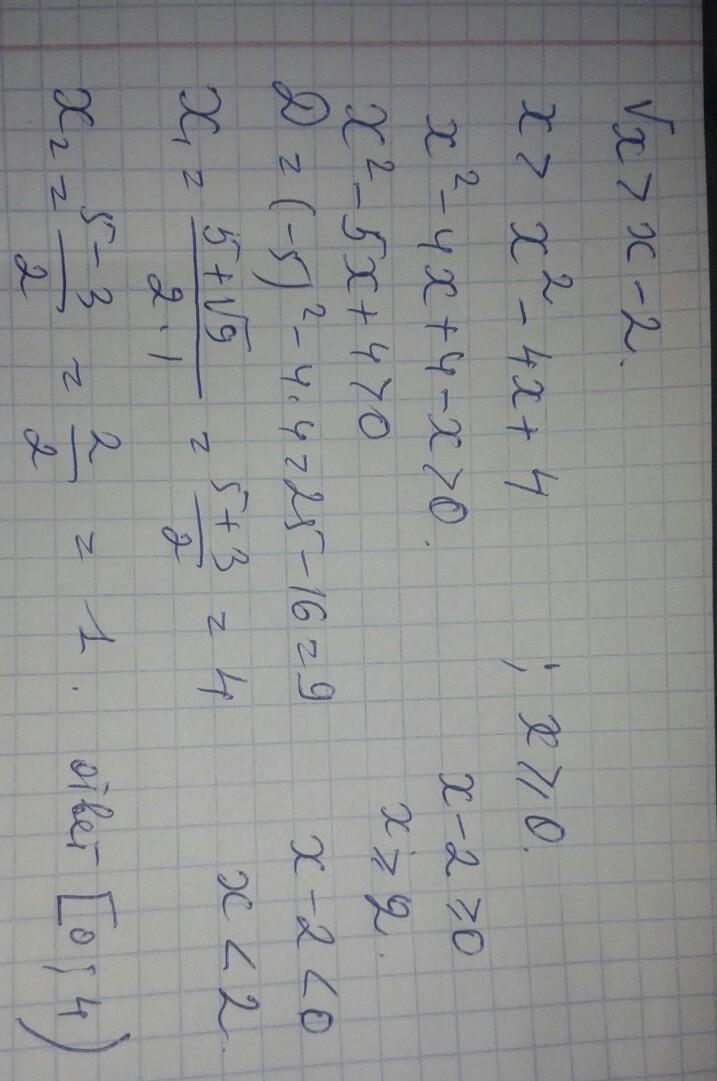 √x > x - 2.
x > x² - 4x + 4 ; x ⩾ 0.
x² - 4x + 4 - x > 0. x - 2 ⩾ 0
x² - 5x + 4 > 0 x ⩾ 2.
D = (-5)² - 4·4 = 25 - 16 = 9 x - 2 < 0
x₁ = (5 + √9)/(2·1) = (5 + 3)/2 = 4 x < 2.
x₂ = (5 - 3)/2 = 2/2 = 1. ответ [0; 4)